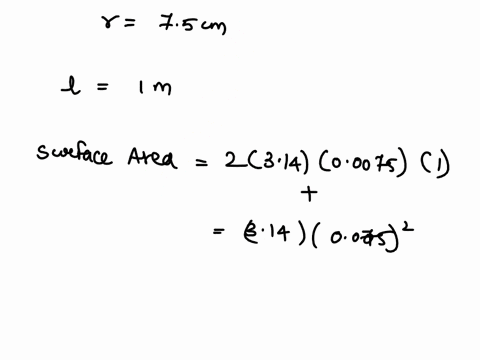 r = 7.5 cm
l = 1 m
Surface Area = 2(3.14)(0.0075)(1)
+
= (3.14)(0.075)²